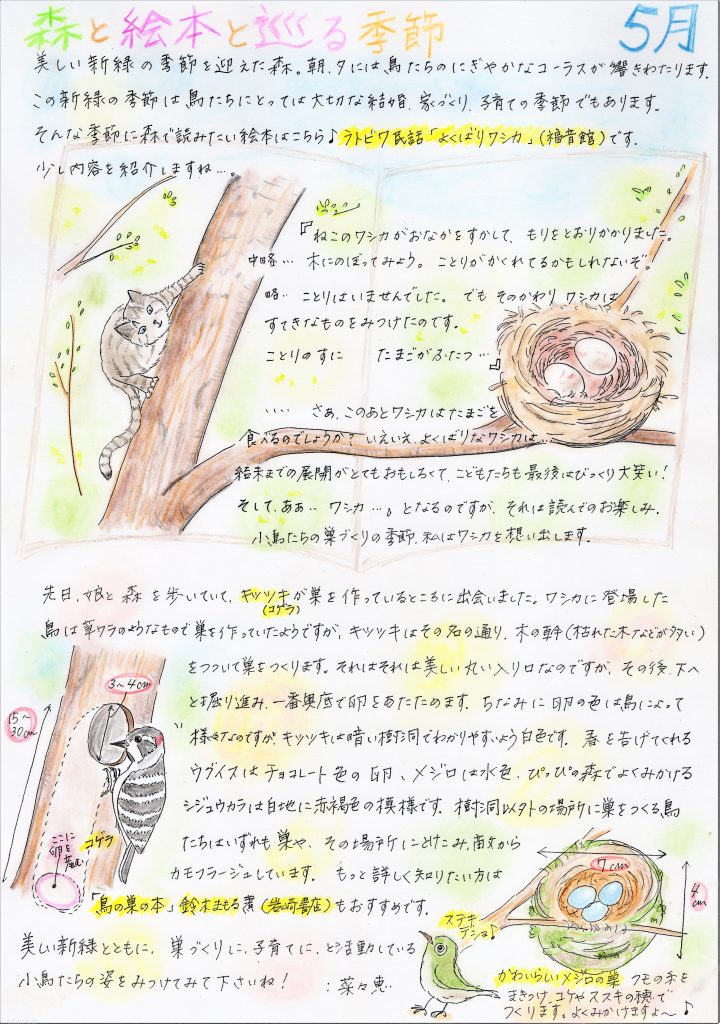 森と絵本と巡る季節 5月
美しい新緑の季節を迎えた森。朝、夕には鳥たちのにぎやかなコーラスが響きわたります。
この新緑の季節は鳥たちにとっては大切な結婚、家づくり、子育ての季節でもあります。
そんな季節に森で読みたい絵本はこちら♪ラトビア民話「よくばりワシカ」(福音館)です。
少し内容を紹介しますね…。
『ねこのワシカがおなかをすかして、もりをとおりかかりました。
中略… 木にのぼってみよう。ことりがかくれてるかもしれないぞ。
略… ことりはいませんでした。でもそのかわりワシカは
すてきなものをみつけたのです。
ことりのすに たまごがふたつ…』
‥‥ さあ、このあとワシカはたまごを
食べるのでしょうか?いえいえ、よくばりなワシカは…
結末までの展開がとてもおもしろくて、こどもたちも最後はびっくり大笑い!
そして、ああ‥ワシカ…。となるのですが、それは読んでのお楽しみ。
小鳥たちの巣づくりの季節、私はワシカを想い出します。
先日、娘と森を歩いていて、キツツキが巣を作っているところに出会いました。ワシカに登場した
(コゲラ)
鳥は草ワラのようなもので巣を作っていたようですが、キツツキはその名の通り、木の幹(枯れた木などが多い)
をつついて巣をつくります。それはそれは美しい丸い入り口なのですが、その後、下へ
と掘り進み、一番奥底で卵をあたためます。ちなみに卵の色は鳥によって
様々なのですが、キツツキは暗い樹洞でわかりやすいよう白色です。春を告げてくれる
ウグイスはチョコレート色の卵、メジロは水色、ぴっぴの森でよくみかける
シジュウカラは白地に赤褐色の模様です。樹洞以外の場所に巣をつくる鳥
たちはいずれも巣や、その場所にとけこみ、敵から
カモフラージュしています。もっと詳しく知りたい方は
「鳥の巣の本」鈴木まもる著(岩崎書店)もおすすめです。
美しい新緑とともに、巣づくりに、子育てに、と活動している
小鳥たちの姿をみつけてみて下さいね! :菜々恵‥
3〜4cm
15〜30cm
コゲラ
ここに
卵を
産む
7cm
4cm
ステキ
デショ♪
かわいらしいメジロの巣 クモの糸を
まきつけ、コケやススキの穂で
つくります。よくみかけますよ〜♪